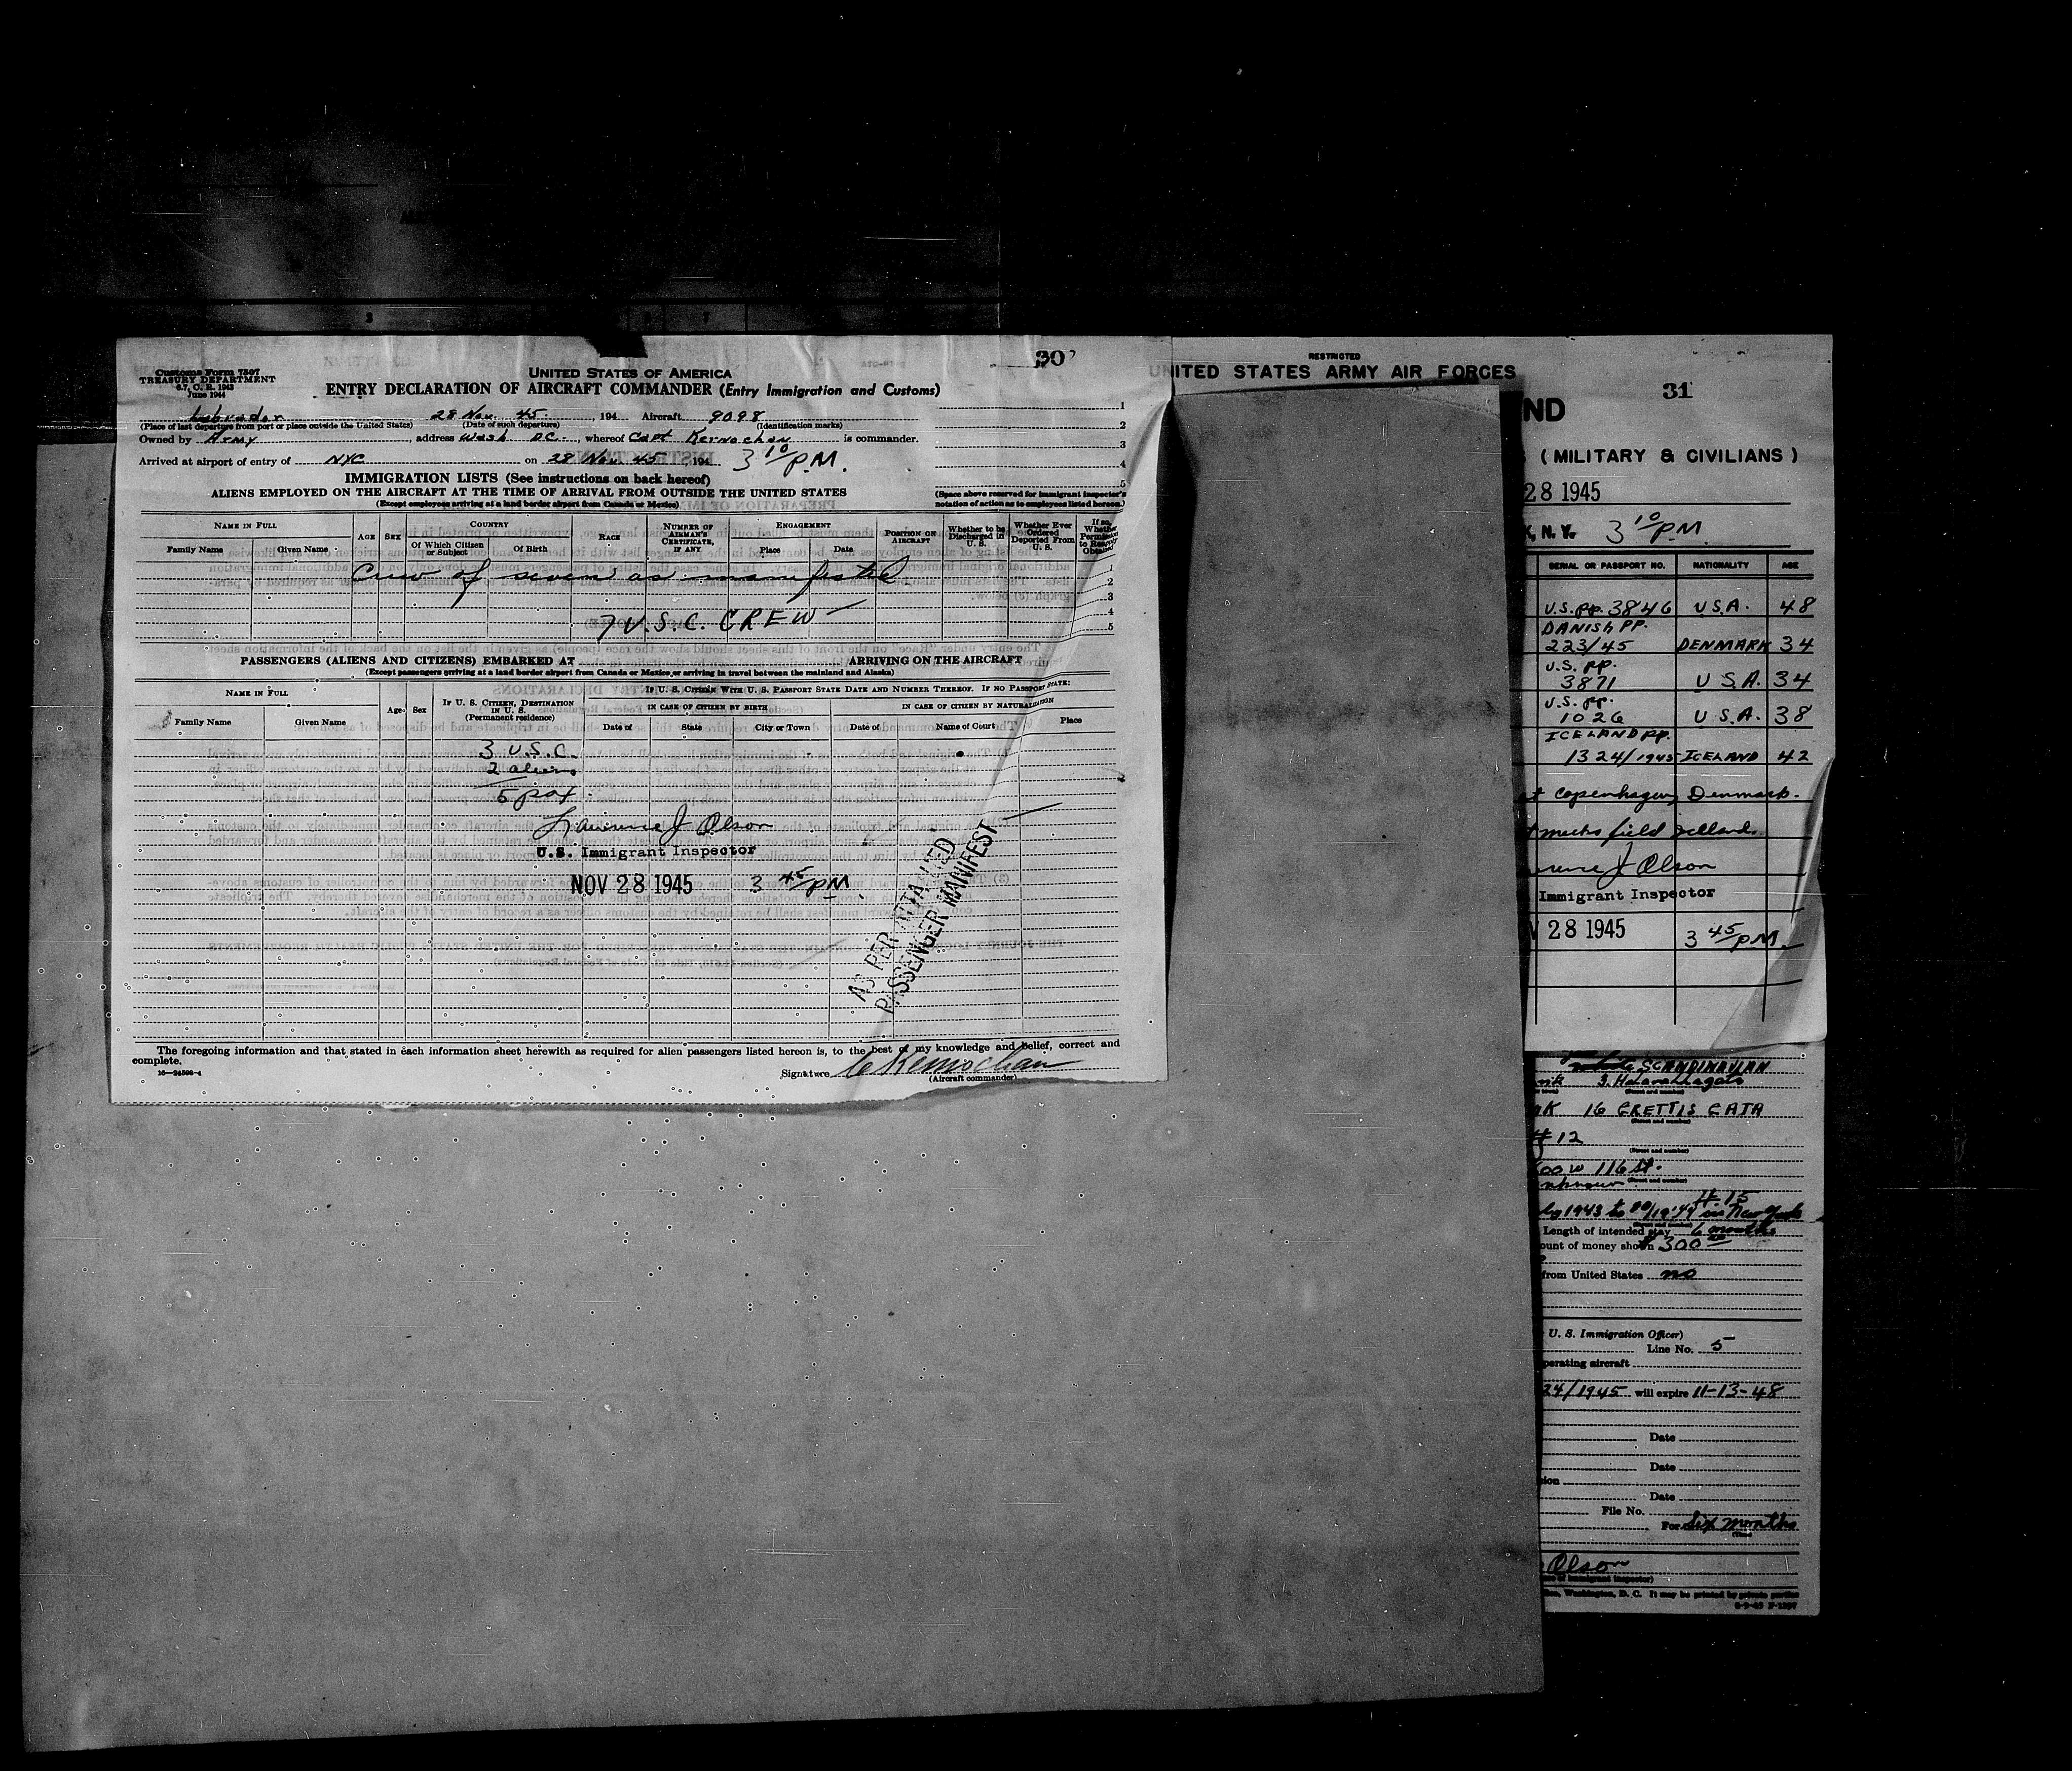 Customs Form 7507
TREASURY DEPARTMENT
6.7, C. R. 1943
June 1944
UNITED STATES OF AMERICA
30
ENTRY DECLARATION OF AIRCRAFT COMMANDER (Entry Immigration and Customs)
Labrador 28 Nov. 45, 194 Aircraft 9098
(Place of last departure from port or place outside the United States) (Date of such departure) (Identification marks)
Owned by Army, address Wash DC., whereof Capt Kernochan is commander.
Arrived at airport of entry of NYC on 28 Nov 45, 194 3 10/P.M.
1
2
3
4
5
IMMIGRATION LISTS (See instructions on back hereof)
ALIENS EMPLOYED ON THE AIRCRAFT AT THE TIME OF ARRIVAL FROM OUTSIDE THE UNITED STATES
(Except employees arriving at a land border airport from Canada or Mexico)
(Space above reserved for immigrant inspector's
notation of action as to employees listed hereon.)
NAME IN FULL
Family Name Given Name
AGE SEX
COUNTRY
Of Which Citizen or Subject Of Birth
RACE
NUMBER OF AIRMAN'S CERTIFICATE, IF ANY
ENGAGEMENT
Place Date
POSITION ON AIRCRAFT
Whether to be Discharged in U. S.
Whether Ever Ordered Deported From U. S.
If so, Whether Permission to Reapply Obtained
Crew of seven as manifested
1
2
3
4
5
7 U.S.C. CREW
PASSENGERS (ALIENS AND CITIZENS) EMBARKED AT ARRIVING ON THE AIRCRAFT
(Except passengers arriving at a land border airport from Canada or Mexico, or arriving in travel between the mainland and Alaska)
NAME IN FULL
Family Name Given Name
Age Sex
IF U. S. CITIZEN, DESTINATION IN U. S.
(Permanent residence)
IF U. S. CITIZEN WITH U. S. PASSPORT STATE DATE AND NUMBER THEREOF. IF NO PASSPORT STATE:
IN CASE OF CITIZEN BY BIRTH
IN CASE OF CITIZEN BY NATURALIZATION
Date of State City or Town Date of Name of Court Place
3 U.S.C.
2 aliens
5 pax
Lawrence J Olson
U.S. Immigrant Inspector
NOV 28 1945 3 45/PM
AS PER ATTACHED
PASSENGER MANIFEST
The foregoing information and that stated in each information sheet herewith as required for alien passengers listed hereon is, to the best of my knowledge and belief, correct and
complete.
16—24508-4
Signature C Kernochan
(Aircraft commander)
RESTRICTED
UNITED STATES ARMY AIR FORCES
31
ND
S (MILITARY & CIVILIANS)
28 1945
K, N. Y. 3 10/P.M.
SERIAL OR PASSPORT NO. NATIONALITY AGE
U.S. pp. 3846 U.S.A. 48
DANISH PP.
223/45 DENMARK 34
U.S. pp.
3871 U.S.A. 34
U.S. pp.
1026 U.S.A. 38
ICELAND pp.
1324/1945 ICELAND 42
at Copenhagen, Denmark.
t meeks field Iceland.
J Olson
Immigrant Inspector
V 28 1945 3 45/P.M.
SCANDINAVIAN
16 GRETTIS GATA
(Street and number)
#12
(Street and number)
600 W 116 St.
unknown (Street and number)
#15
1943 to 1944 in New York
Length of intended stay 6 months
ount of money shown $300
from United States no
U. S. Immigration Officer)
Line No. 5
perating aircraft
24/1945 will expire 11-13-48
Date
Date
sion
Date
File No.
For Six months
(Time)
Olson
of immigrant inspector)
Washington, D. C. It may be printed by private parties